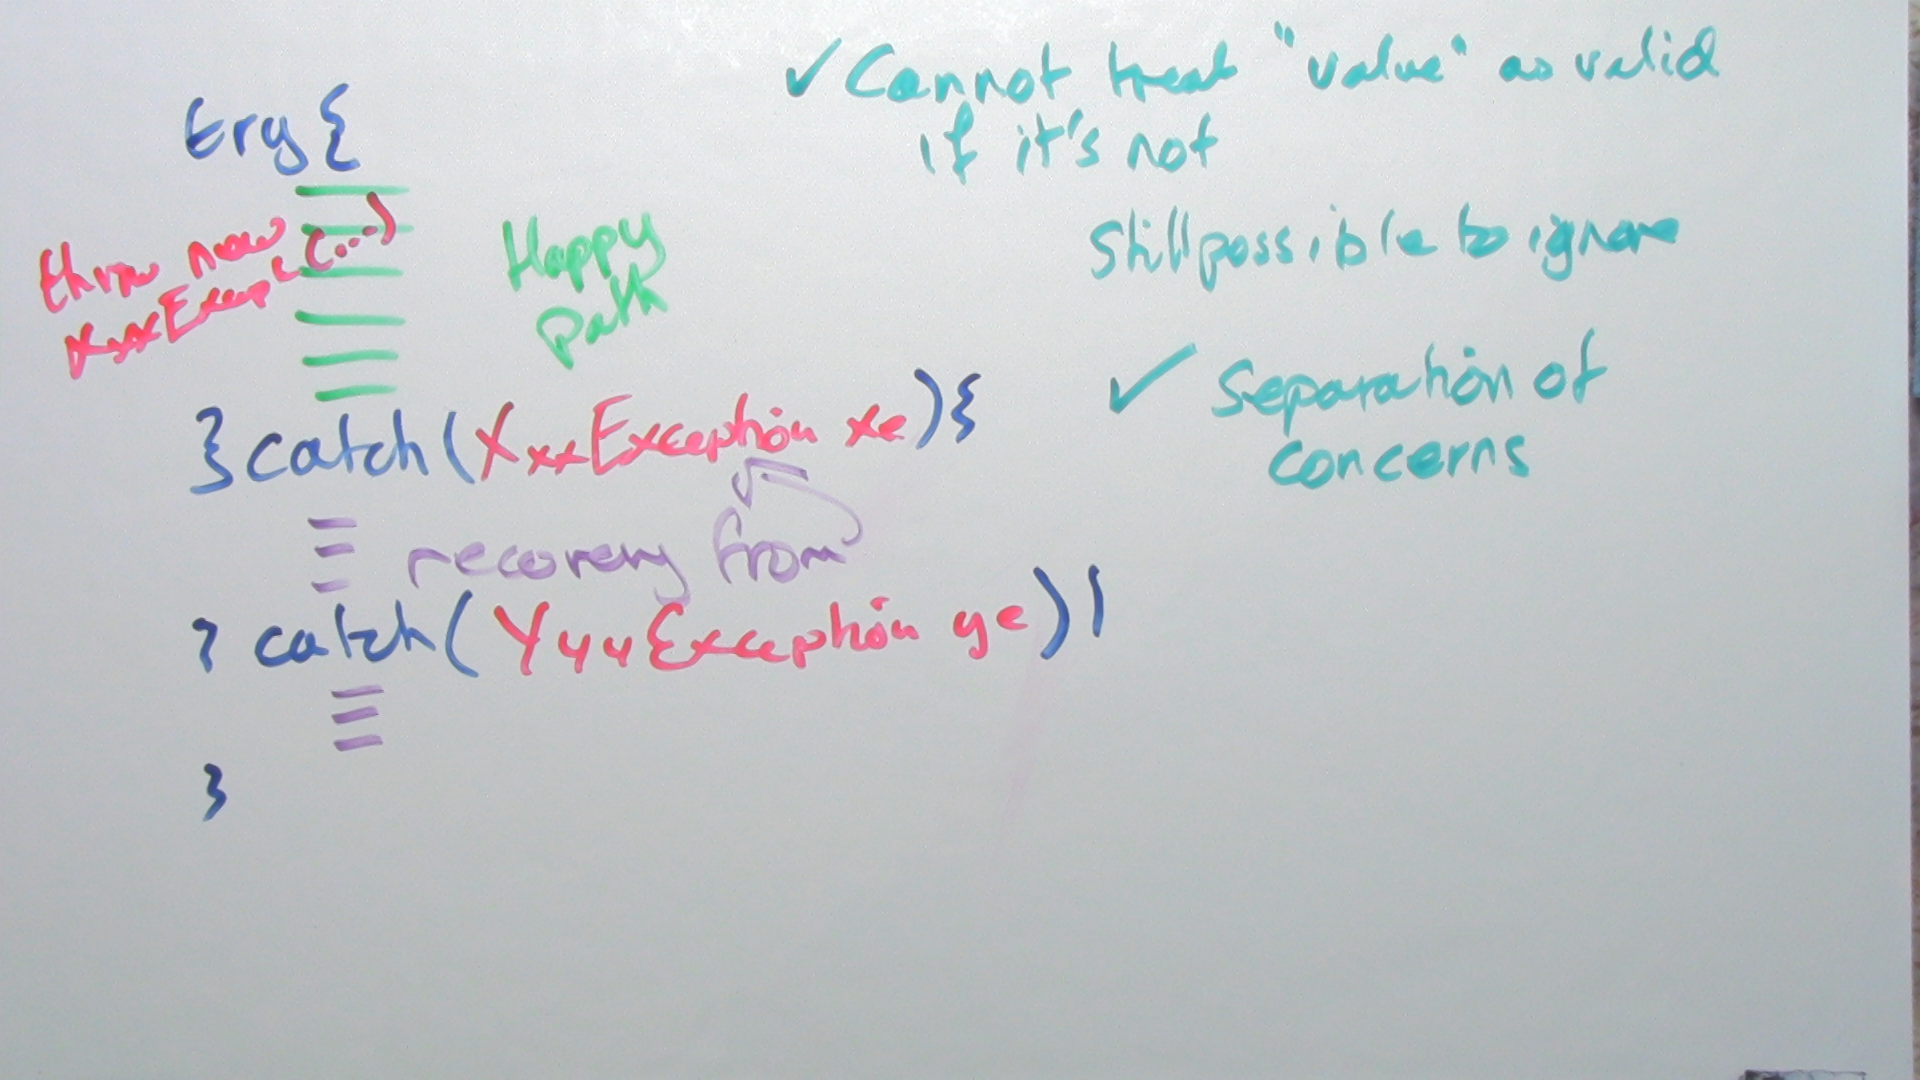 try {
throw new
XxxExcep(...)
Happy
path
} catch (XxxException xe) {
recovery from
} catch (YyyException ye) {
}
✓ Cannot treat "value" as valid
if it's not
Still possible to ignore
✓ Separation of
concerns